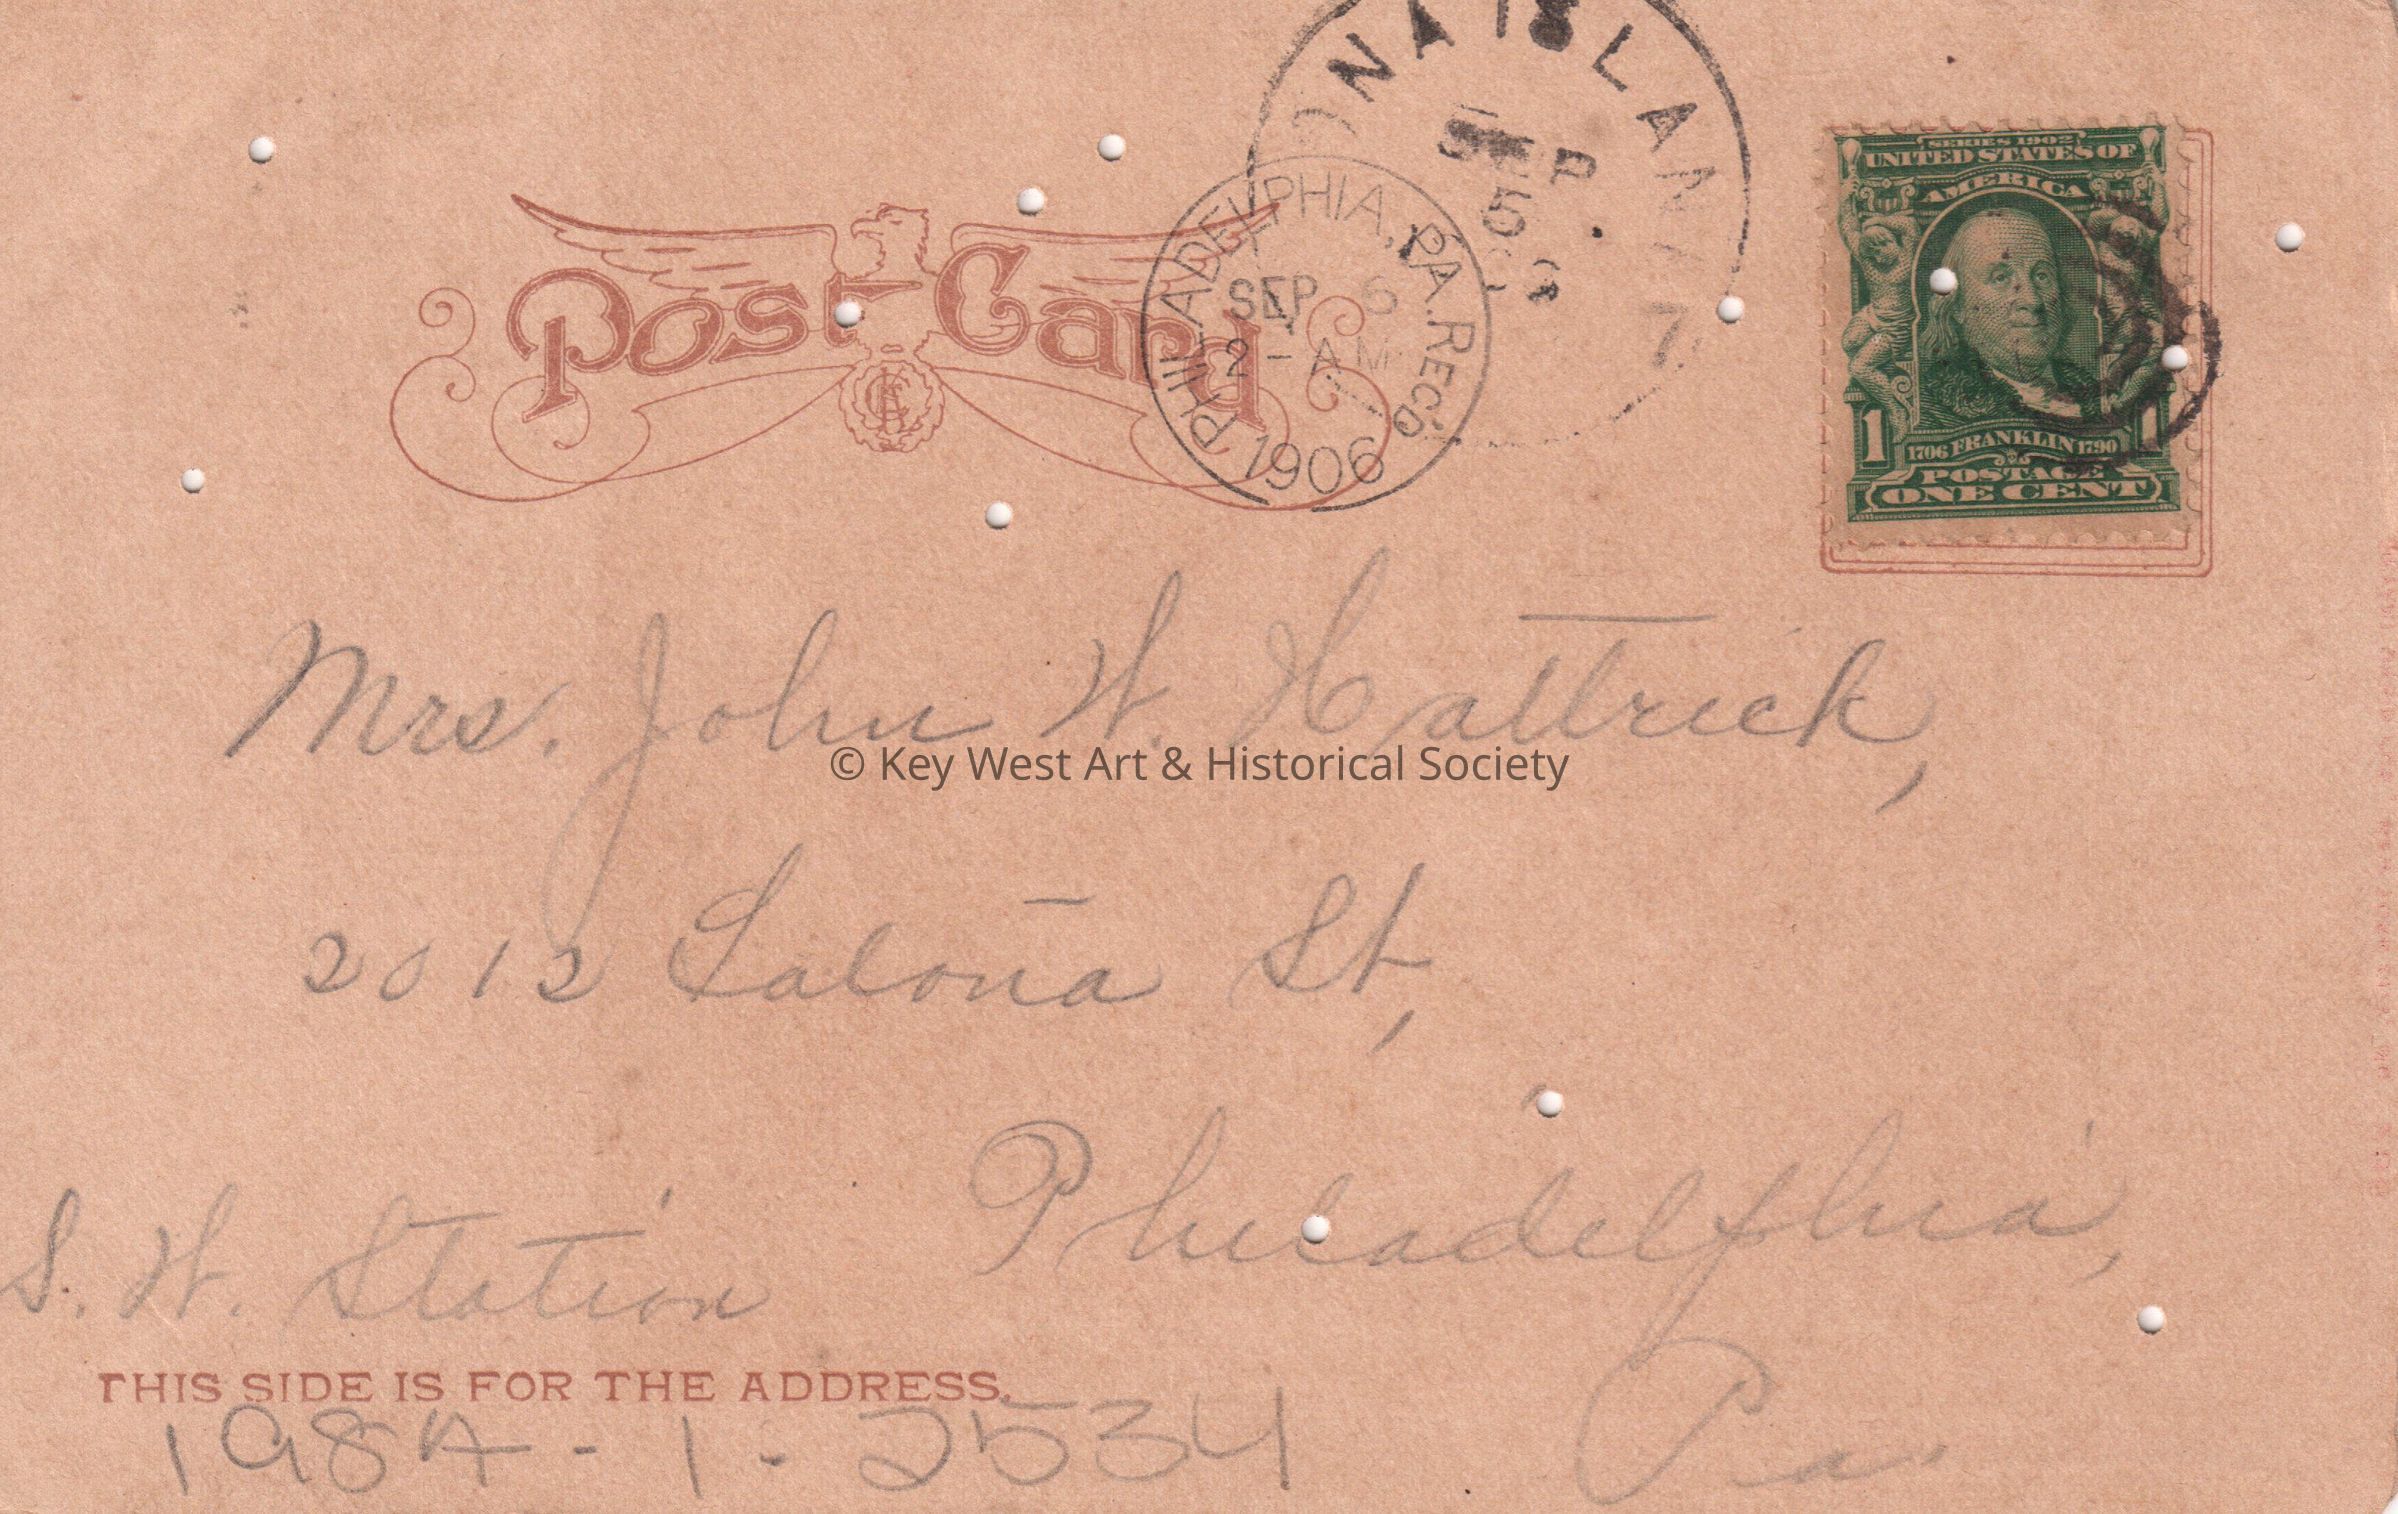 ONA ISLAN
SEP
5
6
7
PHILADELPHIA, PA. REC'D
SEP 6
2 - AM
1906
Post Card
SERIES 1902
UNITED STATES OF
AMERICA
1 1706 FRANKLIN 1790 1
POSTAGE
ONE CENT
Mrs. John W. Hattrick,
© Key West Art & Historical Society
2012 Latona St,
Philadelphia,
S. W. Station
Pa.
THIS SIDE IS FOR THE ADDRESS.
1984 - 1 - 2534